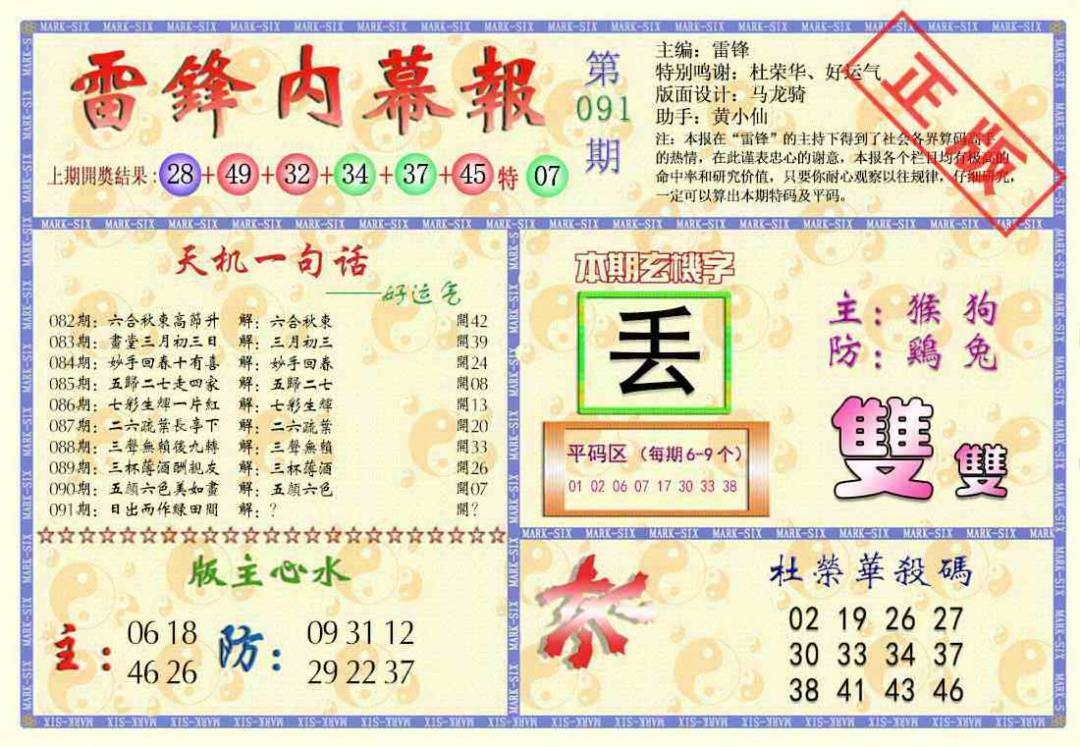 雷鋒内幕報
第
091
期
主编：雷锋
特别鸣谢：杜荣华、好运气
版面设计：马龙骑
助手：黄小仙
注：本报在“雷锋”的主持下得到了社会各界算码高手
的热情，在此谨表忠心的谢意，本报各个栏目均有极高的
命中率和研究价值，只要你耐心观察以往规律，仔细研究，
一定可以算出本期特码及平码。
正版
上期開獎結果：28+49+32+34+37+45特07
天机一句话
——好运气
082期：六合秋東高節升 解：六合秋東 開42
083期：畫堂三月初三日 解：三月初三 開39
084期：妙手回春十有喜 解：妙手回春 開24
085期：五歸二七走四家 解：五歸二七 開08
086期：七彩生輝一片紅 解：七彩生輝 開13
087期：二六疏葉長亭下 解：二六疏葉 開20
088期：三聲無賴後九轉 解：三聲無賴 開33
089期：三杯薄酒酬親友 解：三杯薄酒 開26
090期：五顔六色美如畫 解：五顔六色 開07
091期：日出而作緑田間 解：？ 開？
本期玄機字
丢
主：猴 狗
防：鷄 兔
雙 雙
平码区（每期6-9个）
01 02 06 07 17 30 33 38
版主心水
主：
06 18
46 26
防：
09 31 12
29 22 37
杀
杜榮華殺碼
02 19 26 27
30 33 34 37
38 41 43 46
MARK-SIX